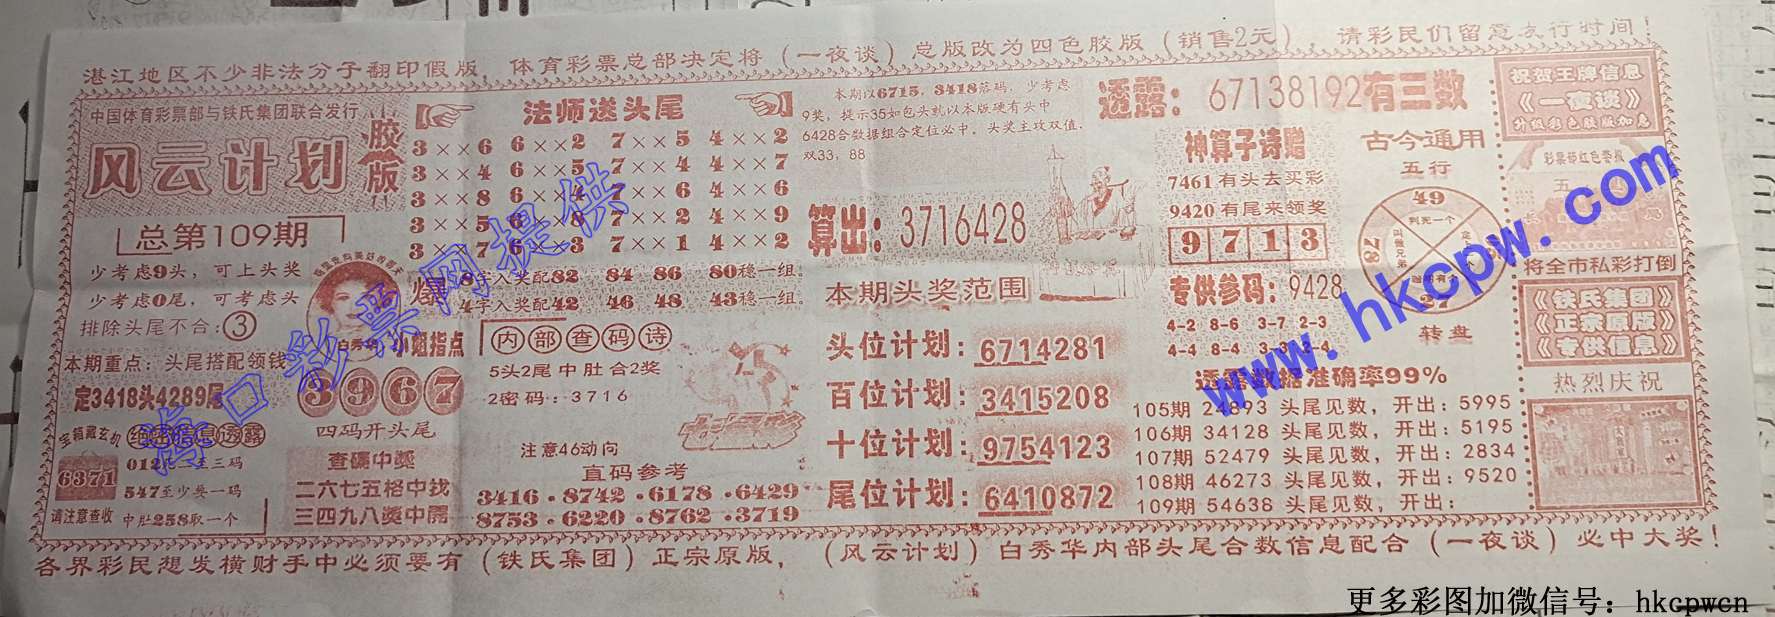 湛江地区不少非法分子翻印假版，体育彩票总部决定将（一夜谈）总版改为四色胶版（销售2元），请彩民们留意发行时间！
中国体育彩票部与铁氏集团联合发行
风云计划
胶版
总第109期
少考虑9头，可上头奖
少考虑0尾，可考虑头
排除头尾不合：③
本期重点：头尾搭配领钱
定3418头4289尾
宝箱藏玄机
绝密信息透露
6371
547至少要一码
请注意查收 中肚258取一个
法师送头尾
3××6 6××2 7××5 4××2
3××4 6××5 7××4 4××7
3××8 6××4 7××6 4××6
3××5 6××8 7××2 4××9
3××7 6××3 7××1 4××2
爆
8字入奖配82 84 86 80稳一组。
4字入奖配42 46 48 43稳一组。
白秀华 小姐指点
3967
四码开头尾
查码中奖
二六七五格中找
三四九八奖中开
内部查码诗
5头2尾中肚合2奖
2密码：3716
注意46动向
直码参考
3416·8742·6178·6429
8753·6220·8762·3719
本期以6715，3418落码，少考虑
9奖，提示35如包头就以本版硬有头中
6428合数据组合定位必中，头奖主攻双值，
双33，88
算出：3716428
本期头奖范围
头位计划：6714281
百位计划：3415208
十位计划：9754123
尾位计划：6410872
透露：67138192有三数
神算子诗赠
7461有头去买彩
9420有尾来领奖
9713
专供参码：9428
4-2 8-6 3-7 2-3
4-4 8-4 3-3 2-4
古今通用
五行
49
78
27
转盘
透露数据准确率99%
105期 24893 头尾见数，开出：5995
106期 34128 头尾见数，开出：5195
107期 52479 头尾见数，开出：2834
108期 46273 头尾见数，开出：9520
109期 54638 头尾见数，开出：
祝贺王牌信息
《一夜谈》
升级彩色胶版加急
彩票部红色警报
将全市私彩打倒
《铁氏集团》
《正宗原版》
《专供信息》
热烈庆祝
各界彩民想发横财手中必须要有（铁氏集团）正宗原版，（风云计划）白秀华内部头尾合数信息配合（一夜谈）必中大奖！
海口彩票网提供
www.hkcpw.com
更多彩图加微信号：hkcpwcn